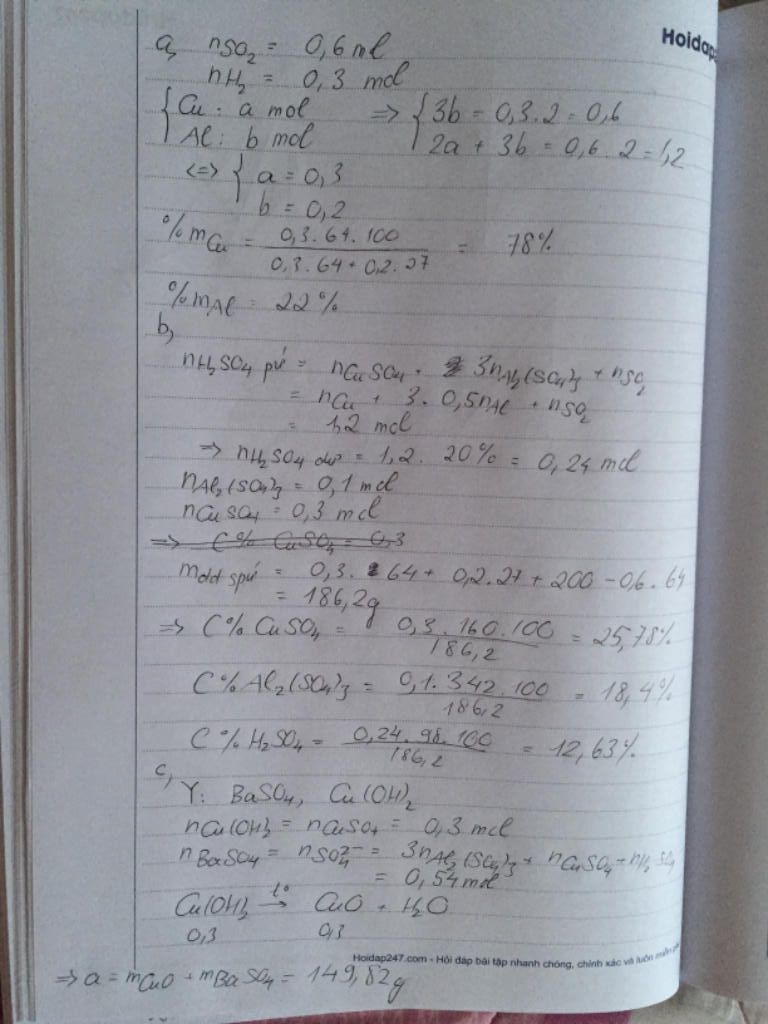 Hoidap
a, nSO2 = 0,6 ml
nH2 = 0,3 mol
{ Cu : a mol => { 3b = 0,3.2 = 0,6
Al : b mol 2a + 3b = 0,6.2 = 1,2
<=> { a = 0,3
b = 0,2
%mCu = 0,3.64.100 / 0,3.64+0,2.27 = 78%
%mAl = 22%
b,
nH2SO4 pứ = nCuSO4 + 3nAl2(SO4)3 + nSO2
= nCu + 3.0,5nAl + nSO2
= 1,2 mol
=> nH2SO4 dư = 1,2.20% = 0,24 mol
nAl2(SO4)3 = 0,1 mol
nCuSO4 = 0,3 mol
=> C% CuSO4 = 0,3
mdd spứ = 0,3.64 + 0,2.27 + 200 - 0,6.64
= 186,2g
=> C% CuSO4 = 0,3.160.100 / 186,2 = 25,78%
C% Al2(SO4)3 = 0,1.342.100 / 186,2 = 18,4%
C% H2SO4 = 0,24.98.100 / 186,2 = 12,63%
c,
Y: BaSO4, Cu(OH)2
nCu(OH)2 = nCuSO4 = 0,3 mol
nBaSO4 = nSO4 2- = 3nAl2(SO4)3 + nCuSO4 + nH2SO4
= 0,54 mol
Cu(OH)2 t° → CuO + H2O
0,3 0,3
Hoidap247.com - Hỏi đáp bài tập nhanh chóng, chính xác và luôn miễn
=> a = mCuO + mBaSO4 = 149,82g